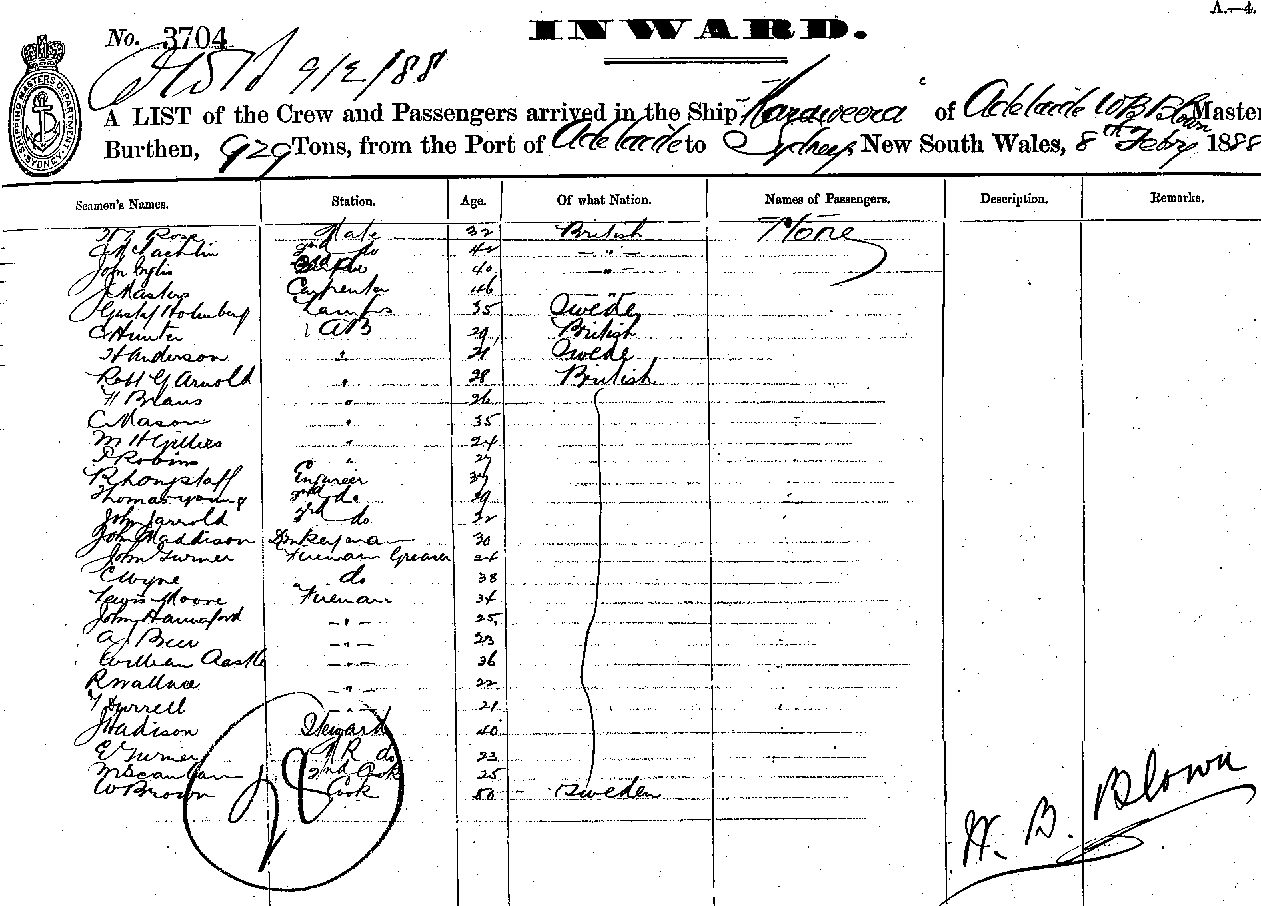 A.—4.
No. 3704
INWARD.
9/2/88
SHIPPING MASTERS DEPARTMENT SYDNEY
A LIST of the Crew and Passengers arrived in the Ship "Kanaweera" of Adelaide W B Blown Master
Burthen, 929 Tons, from the Port of Adelaide to Sydney, New South Wales, 8th Febry 1888
Seamen's Names. Station. Age. Of what Nation. Names of Passengers. Description. Remarks.
Rose Mate 32 British None
McLachlin 2nd do 42 - " -
John Inglis 40 - " -
J Masters Carpenter 46 "
Gustaf Holmberg Lamps 35 Swede
C Hunter AB 29 British
H Anderson " 21 Swede
Robt G Arnold " 28 British
H Beaus " 26
C Mason " 35
M H Gillies " 24
Robins " 27
R Longstaff Engineer 37
Thomas Young 2nd do 29
John Jarrold 3rd do 22
John Maddison Donkeyman 30
John Turner Fireman Greaser 24
C Wyne do 38
Lewis Moore Fireman 34
John Hannaford - " - 25
A J Beer - " - 23
William Aastle - " - 36
R Wallace - " - 22
Durrell " 21
J Hadison Steward 40
E Turner do 23
M Scanlan 2nd Cook 25
W Brown Cook 50 Sweden
28
W. B. Blown